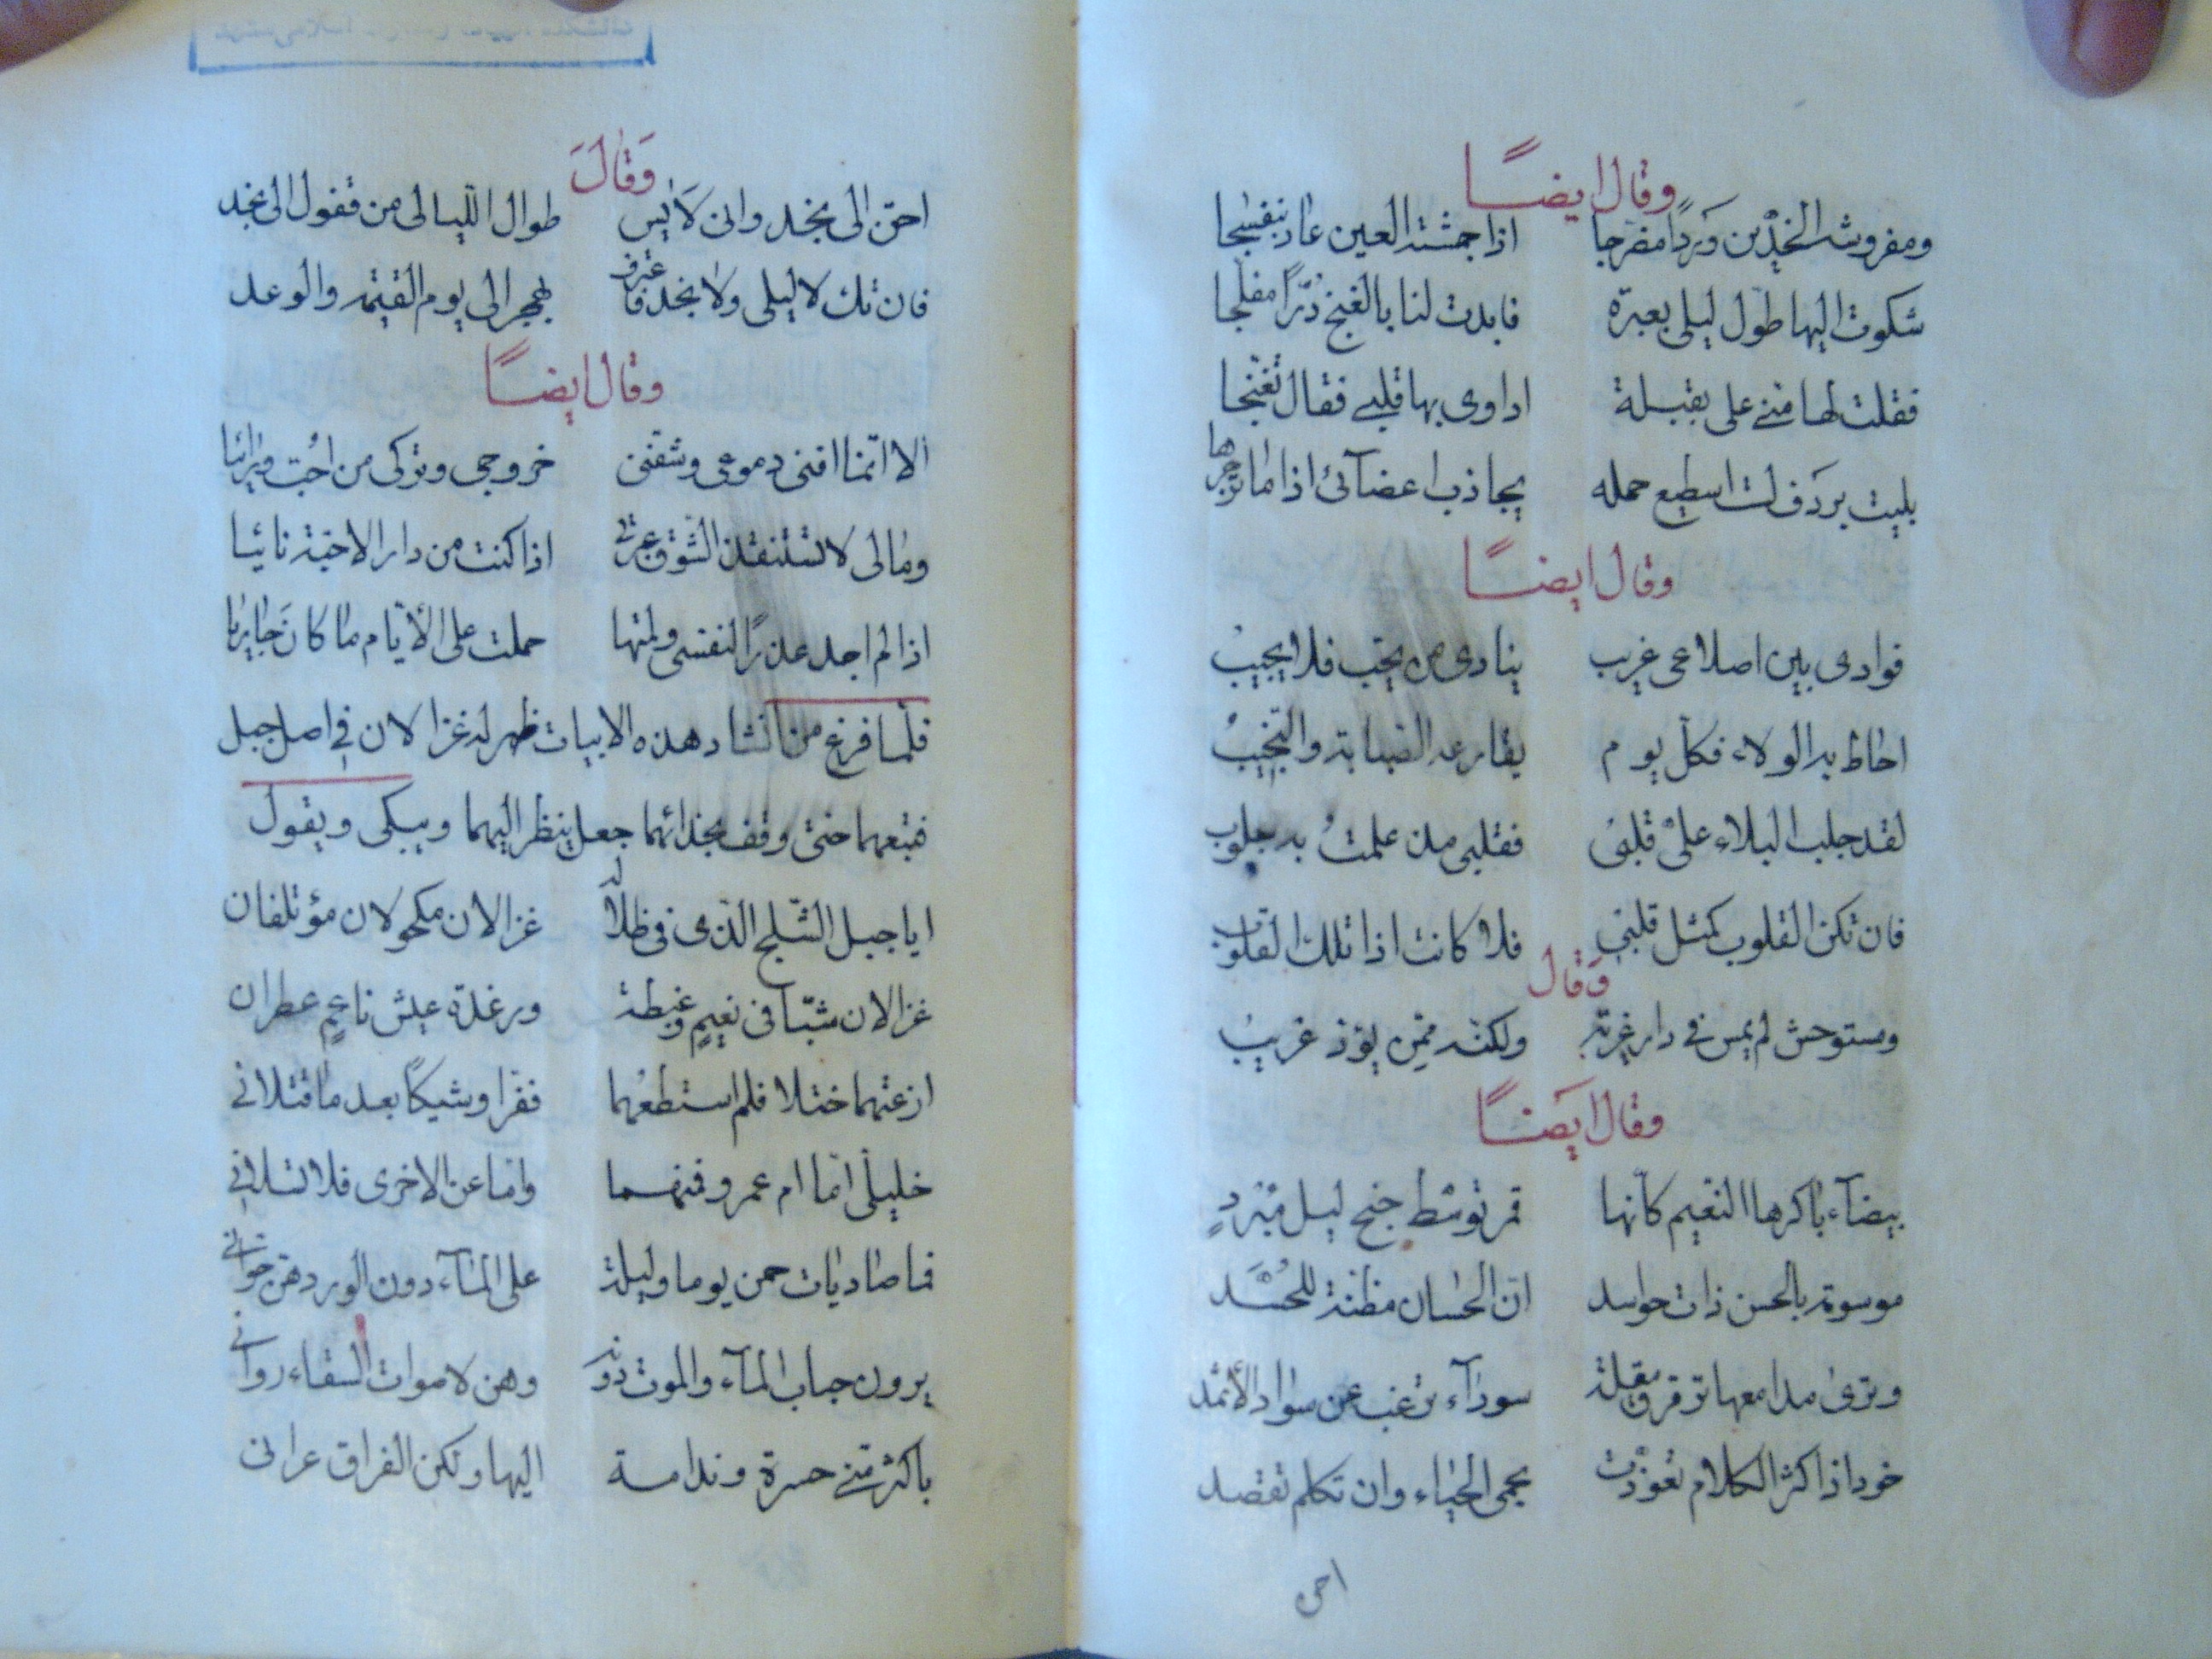 وقال ايضًا
ومفروشه الخدّين وَردًا مضرجا اذا جمشته العين عاد بنفسجا
شكوت اليها طول ليلى بعبرة فابدت لنا بالغنج دُرًّا مفلّجا
فقلت لها منّى على بقبلة اداوى بها قلبى فقال تغنّجا
بليت بردف لست اسطيع حمله يجاذب اعضآئى اذا ما ترجرجا
وقال ايضًا
فوادى بين اضلاعى غريب ينادى من يحب فلا يجيبُ
احاط به الولاء فكلّ يوم يقارعه الصبابة والنّحيبُ
لقد جلب البلاء علىّ قلبى فقلبى مذ علمتُ به جلوب
فان تكن القلوب كمثل قلبى فلا كانت اذا تلك القلوب
وَقال
ومستوحش لم يمس فى دار غربة ولكنّه ممّن يودّ غريبُ
وقال ايضًا
بيضآء باكرها النّعيم كانّها قمر توسّط جنح ليل مبرد
موسومة بالحسن ذات حواسد انّ الحسان مظنّة للحُسَّد
وترى مدامعها ترقرق مقلة سودآء ترغب عن سواد الأثمد
خود اذا كثر الكلام تعوّذت بحمى الحياء وان تكلم تقصد
احن
وَقالَ
احنّ الى نجد وانى لَآيس طوال اللّيالى من قفول الى نجد
فان تك لا ليلى ولا نجد فاعترف بهجر الى يوم القيمة والوعد
وقال ايضًا
الا انّما افنى دموعى وشفّنى خروجى وتركى من احُبّ ورائيا
ومالى لا تستنفذ الشّوق عبرتى اذا كنت من دار الاحبّة نائيا
اذا لم اجد عذرًا لنفسى ولمتها حملت على الأيّام ما كان جَاريا
فلمّا فرغ من انشاد هذه الابيات ظهر له غزالان فى اصل جبل
فتبعهما حتى وقف بحذائهما جعل ينظر اليهما ويبكى ويقول
ايا جبل الثّلج الذّى فى ظلاله غزالان مكحولان مؤتلفان
غزالان شبّا فى نعيمٍ وغبطة ورغدة عيش ناعمٍ عطران
ارغتهما ختلا فلم استطعهما ففرّا وشيكًا بعد ما قتلانى
خليلّى امّا ام عمرو فمنهما وامّا عن الاخرى فلا تسلانى
فما صاديات حمن يوما وليلة على المآء دون الورد هنّ حوانى
يرون حباب المآء والموت دونه وهن لاصوات السقاء روانى
باكثر منّى حسرة وندامة اليها ولكن الفراق عرانى